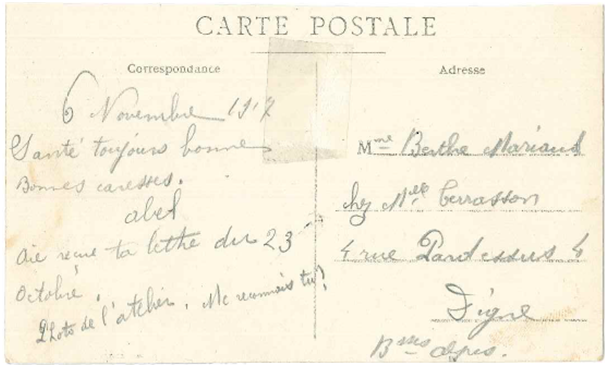 CARTE POSTALE
Correspondance
6 Novembre 1917
Santé toujours bonne
Bonnes caresses.
abel
aie reçue ta lettre du 23
Octobre.
Photo de l'atelier. Me reconnais tu?
Adresse
Mme Berthe Mariaud
chez Melle Terrasson
4 rue Pardessus 4
Digne
Bses alpes.